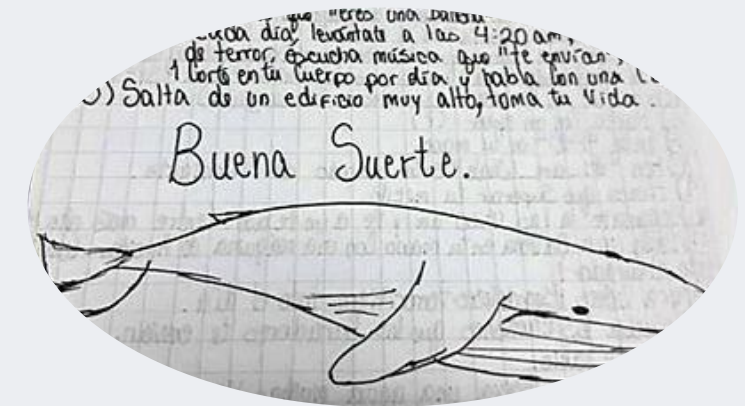 que "eres una
cada día, levántate a las 4:20 am,
de terror, escucha música que "te envían",
1 corte en tu cuerpo por día y habla con una
) Salta de un edificio muy alto, toma tu vida.
Buena Suerte.